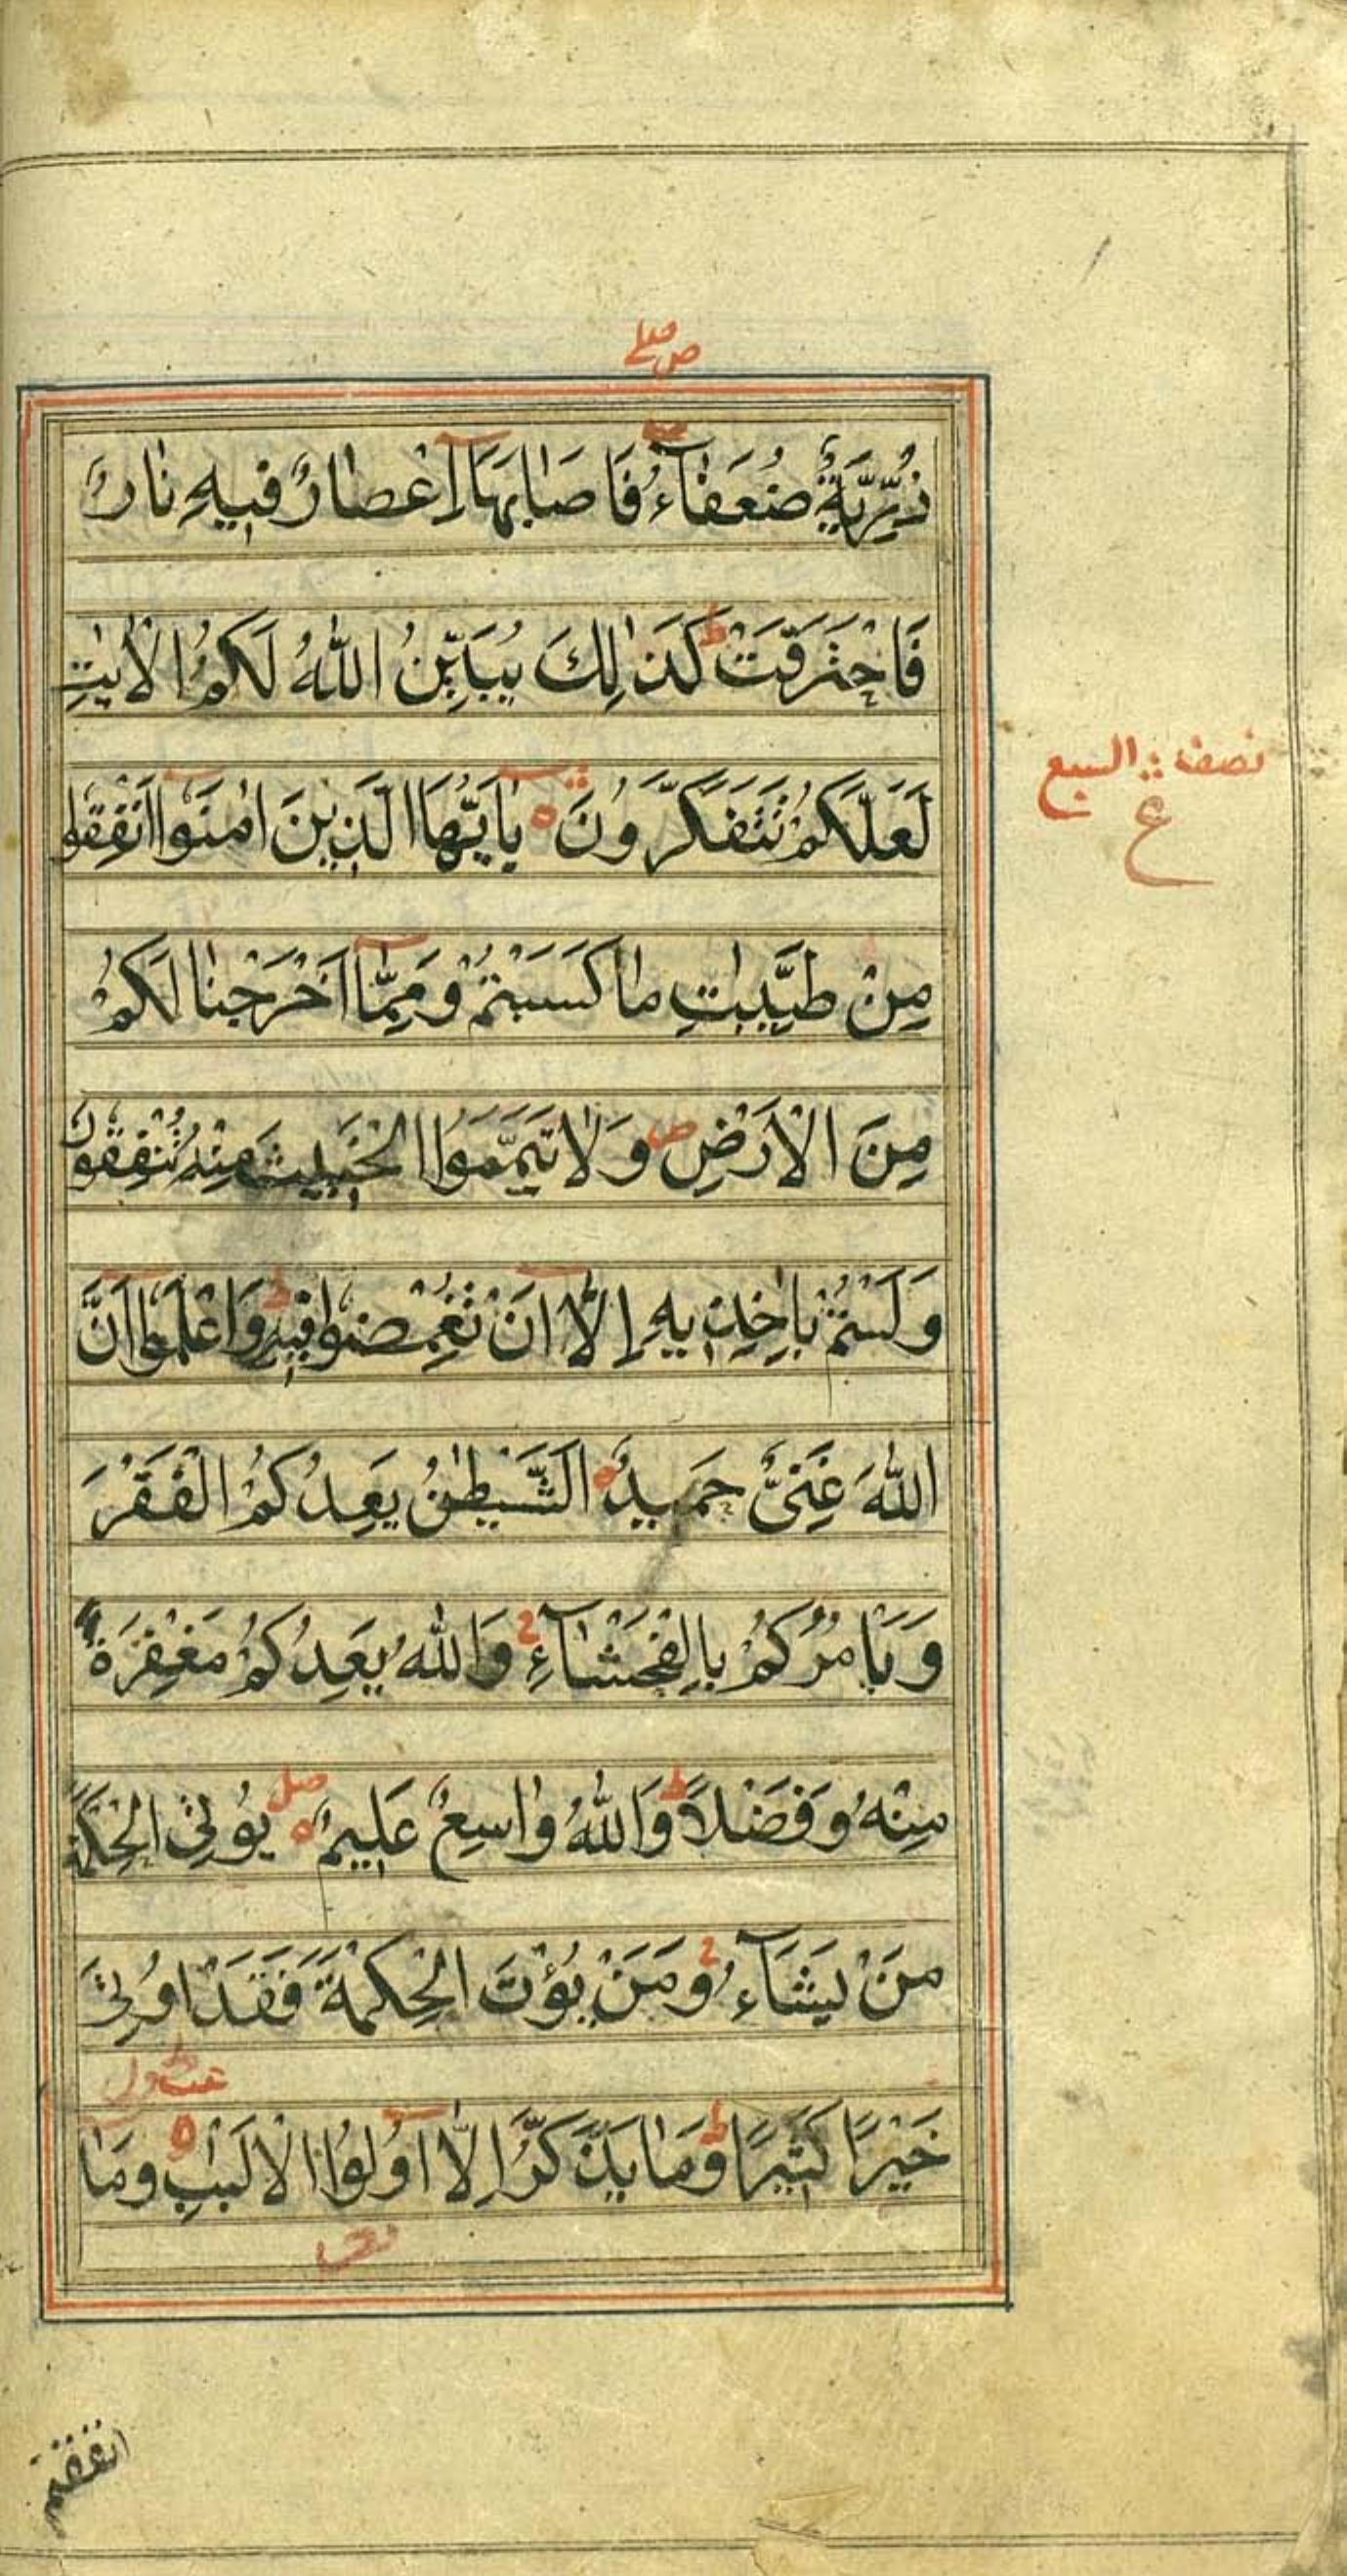 ص صلے
ذُرِّيَّةٌ ضُعَفَآءُ فَاَصَابَهَآ اِعْصَارٌ فِيهِ نَارٌ
فَاحْتَرَقَتْ ط كَذٰلِكَ يُبَيِّنُ اللّٰهُ لَكُمُ الْاٰيٰتِ
لَعَلَّكُمْ تَتَفَكَّرُونَ ه يٰاَيُّهَا الَّذِينَ اٰمَنُوٓا اَنْفِقُوا
نصف السبع
ع
مِنْ طَيِّبٰتِ مَا كَسَبْتُمْ وَمِمَّآ اَخْرَجْنَا لَكُمْ
مِنَ الْاَرْضِ ص وَلَا تَيَمَّمُوا الْخَبِيثَ مِنْهُ تُنْفِقُونَ
وَلَسْتُمْ بِاٰخِذِيهِ اِلَّآ اَنْ تُغْمِضُوا فِيهِ ط وَاعْلَمُوٓا اَنَّ
اللّٰهَ غَنِىٌّ حَمِيدٌ ه اَلشَّيْطٰنُ يَعِدُكُمُ الْفَقْرَ
وَيَاْمُرُكُمْ بِالْفَحْشَآءِ ج وَاللّٰهُ يَعِدُكُمْ مَغْفِرَةً
مِنْهُ وَفَضْلًا ط وَاللّٰهُ وَاسِعٌ عَلِيمٌ ه صل يُؤْتِى الْحِكْمَةَ
مَنْ يَشَآءُ ج وَمَنْ يُؤْتَ الْحِكْمَةَ فَقَدْ اُوتِىَ
خَيْرًا كَثِيرًا ط وَمَا يَذَّكَّرُ اِلَّآ اُولُوا الْاَلْبٰبِ ه وَمَآ
انفقتم